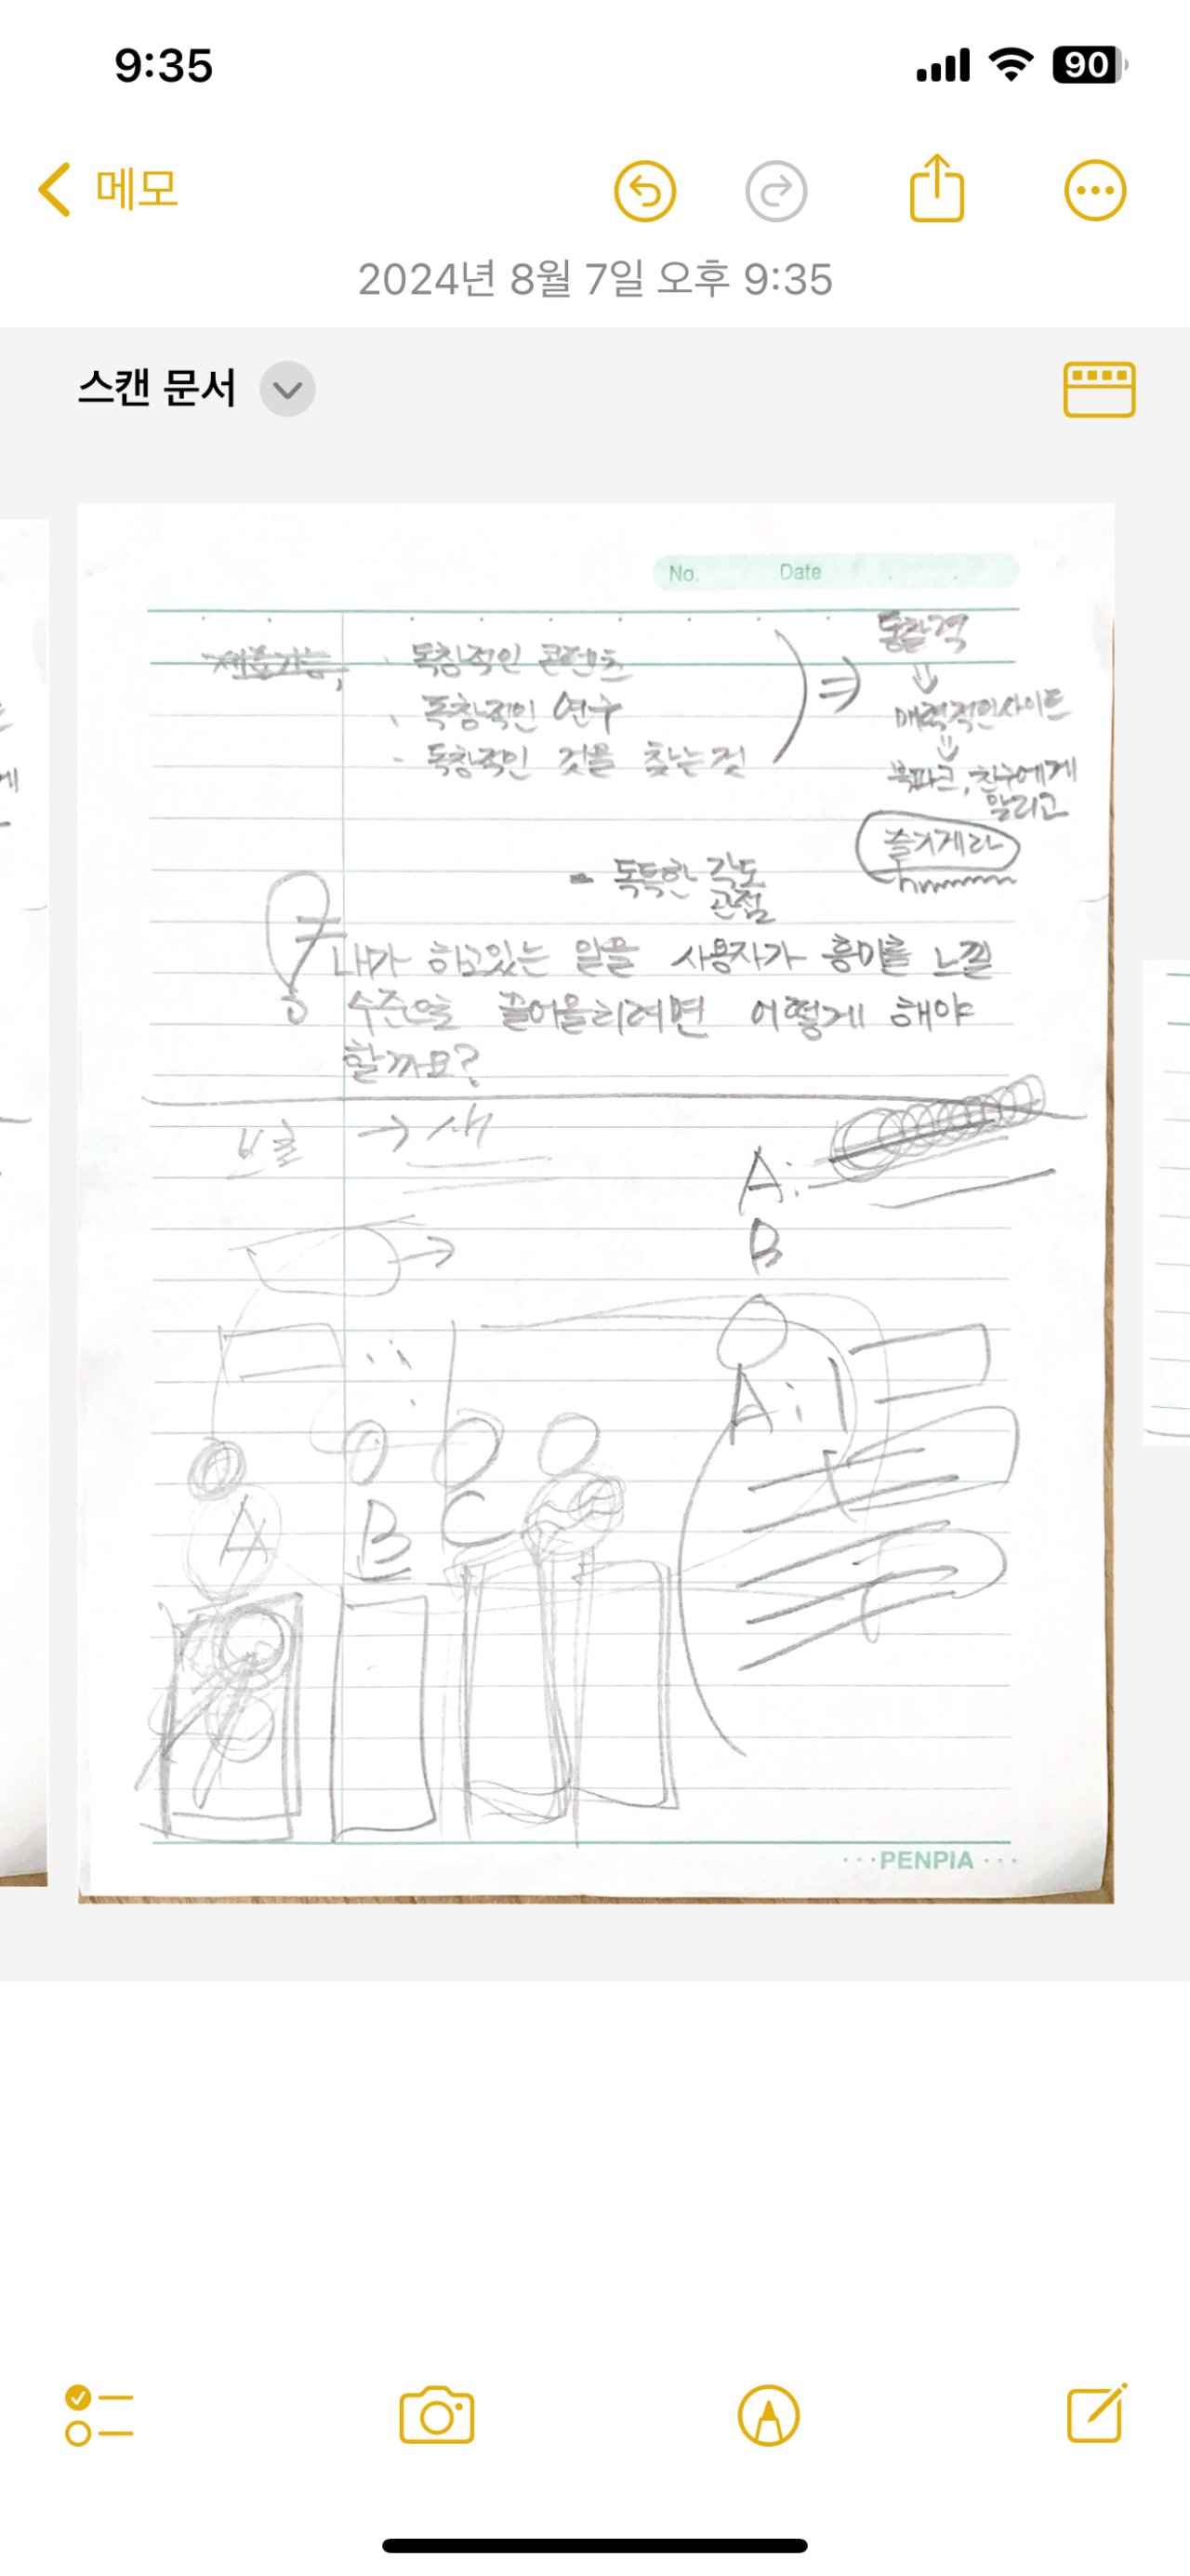 9:35
90
메모
2024년 8월 7일 오후 9:35
스캔 문서
No. Date
· 독창적인 콘텐츠
· 독창적인 연구
- 독창적인 것을 찾는것
⇒
통찰력
⇓
매력적인사이트
⇓
북파크, 친구에게
알리고
즐기게라
- 독특한 각도
관점
내가 하고있는 일을 사용자가 흥미를 느낄
수준으로 끌어올리려면 어떻게 해야
할까요?
→ 새
A:
B
A:
A
B
C
···PENPIA···